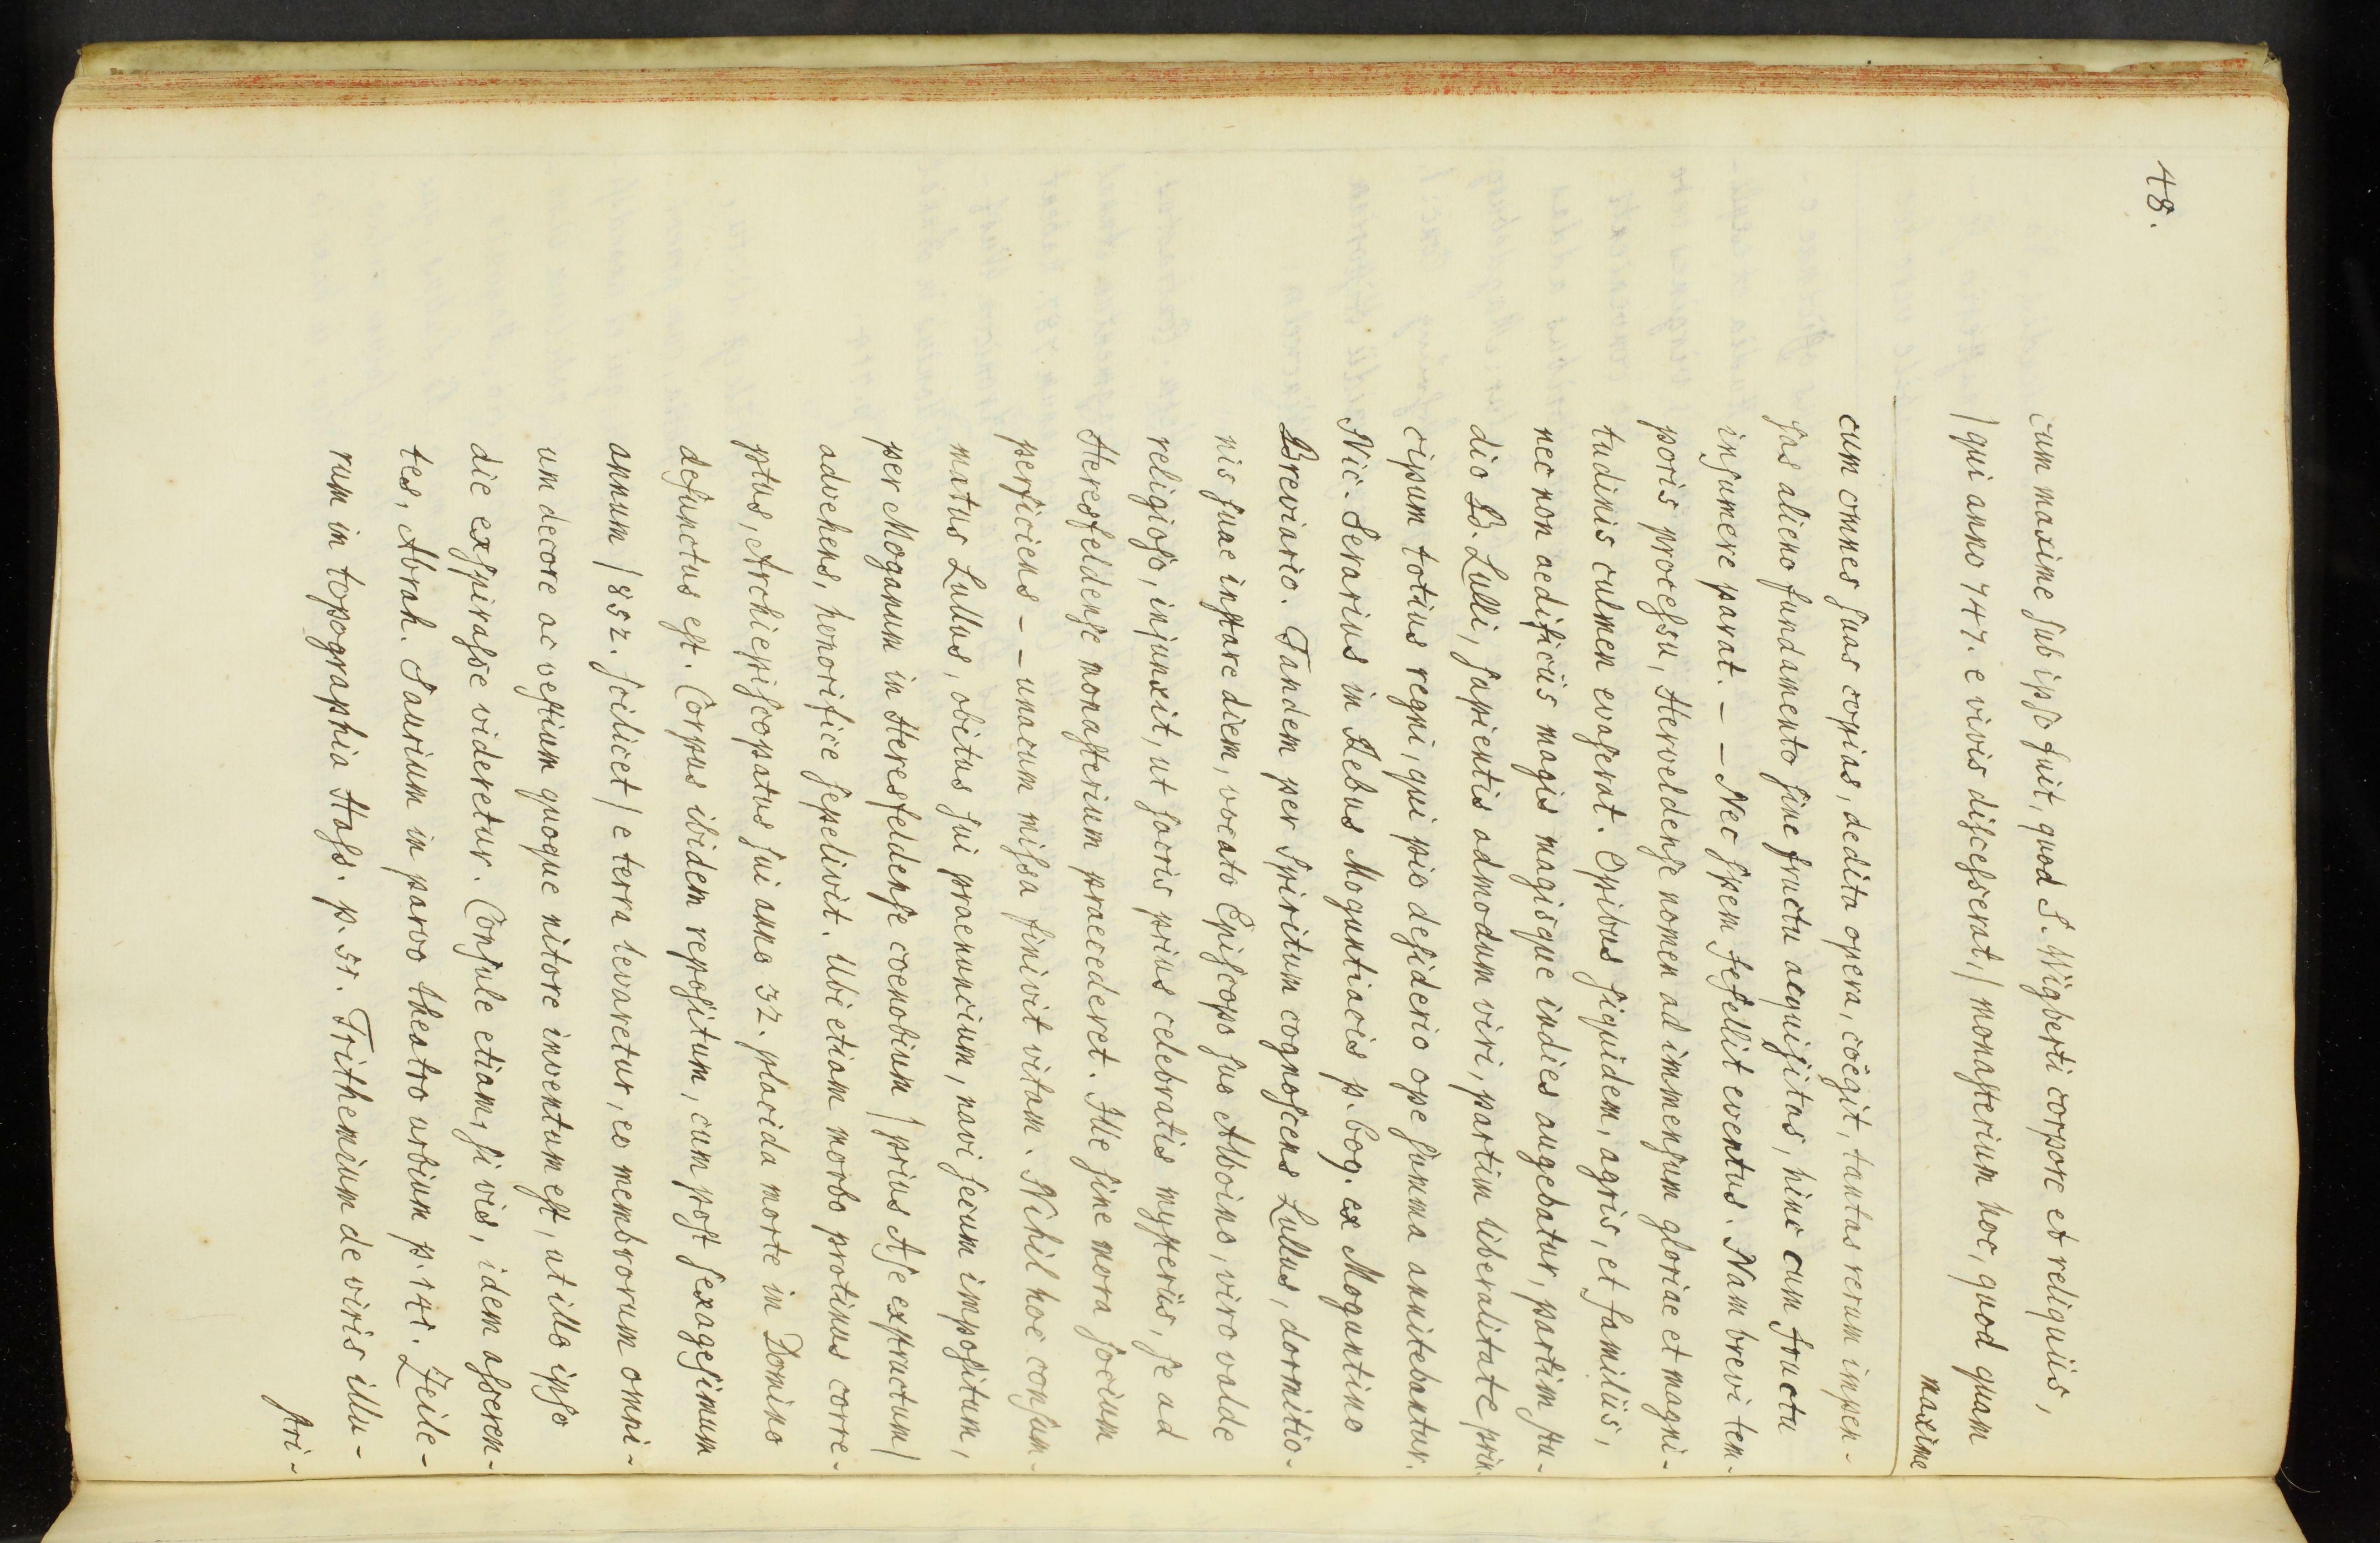 48.
cum maxime ſub ipſo fuit, quod S. Wigberti corpore et reliquiis,
/qui anno 747. e vivis diſceſserat,/ monaſterium hoc, quod quam
maxime
cum omnes ſuas copias, dedita opera, coëgit, tantas rerum impen-
ſas alieno fundamento ſine fructu acquiſitas, hinc cum fructu
inſumere parat. – – Nec ſpem fefellit eventus. Nam brevi tem-
poris proceſsu, Herveldenſe nomen ad immenſum gloriae et magni-
tudinis culmen evaſerat. Opibus ſiquidem, agris, et familiis,
nec non aedificiis magis magisque indies augebatur, partim ſtu-
dio B. Lulli, ſapientis admodum viri, partim liberalitate prin-
cipum totius regni, qui pio deſiderio ope ſumma annitebantur.
Nic. Serarius in Rebus Moguntiacis p. 609. ex Moguntino
Breviario. Tandem per Spiritum cognoſcens Lullus, dormitio-
nis ſuae inſtare diem, vocato Epiſcopo ſuo Alboino, viro valde
religioſo, injunxit, ut ſacris prius celebratis myſteriis, ſe ad
Heresfeldenſe monaſterium praecederet. Ille ſine mora ſocium
perficiens – – unacum miſsa finivit vitam. Nihil hoc conſum-
matus Lullus, obitus ſui praenuncium, navi ſecum impoſitum,
per Moganum in Heresfeldenſe coenobium /prius A ſe exſtructum/
advehens, honorifice ſepelivit. Ubi etiam morbo protinus corre-
ptus, Archiepiſcopatus ſui anno 32. placida morte in Domino
defunctus eſt. Corpus ibidem repoſitum, cum poſt ſexageſimum
annum /852. ſcilicet/ e terra levaretur, eo membrorum omni-
um decore ac veſtium quoque nitore inventum eſt, ut illo ipſo
die exſpiraſse videretur. Conſule etiam, ſi vis, idem aſseren-
tes, Abrah. Saurium in parvo theatro urbium p. 141. Zeile-
rum in topographia Haſs. p. 51. Trithemium de viris illu-
ſtri-